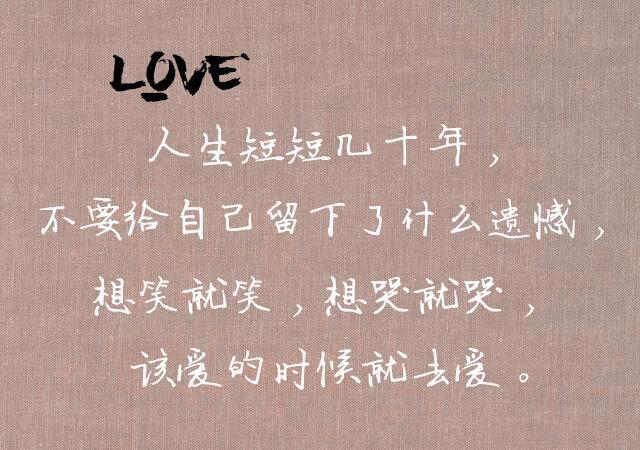 LOVE
人生短短几十年，
不要给自己留下了什么遗憾，
想笑就笑，想哭就哭，
该爱的时候就去爱。